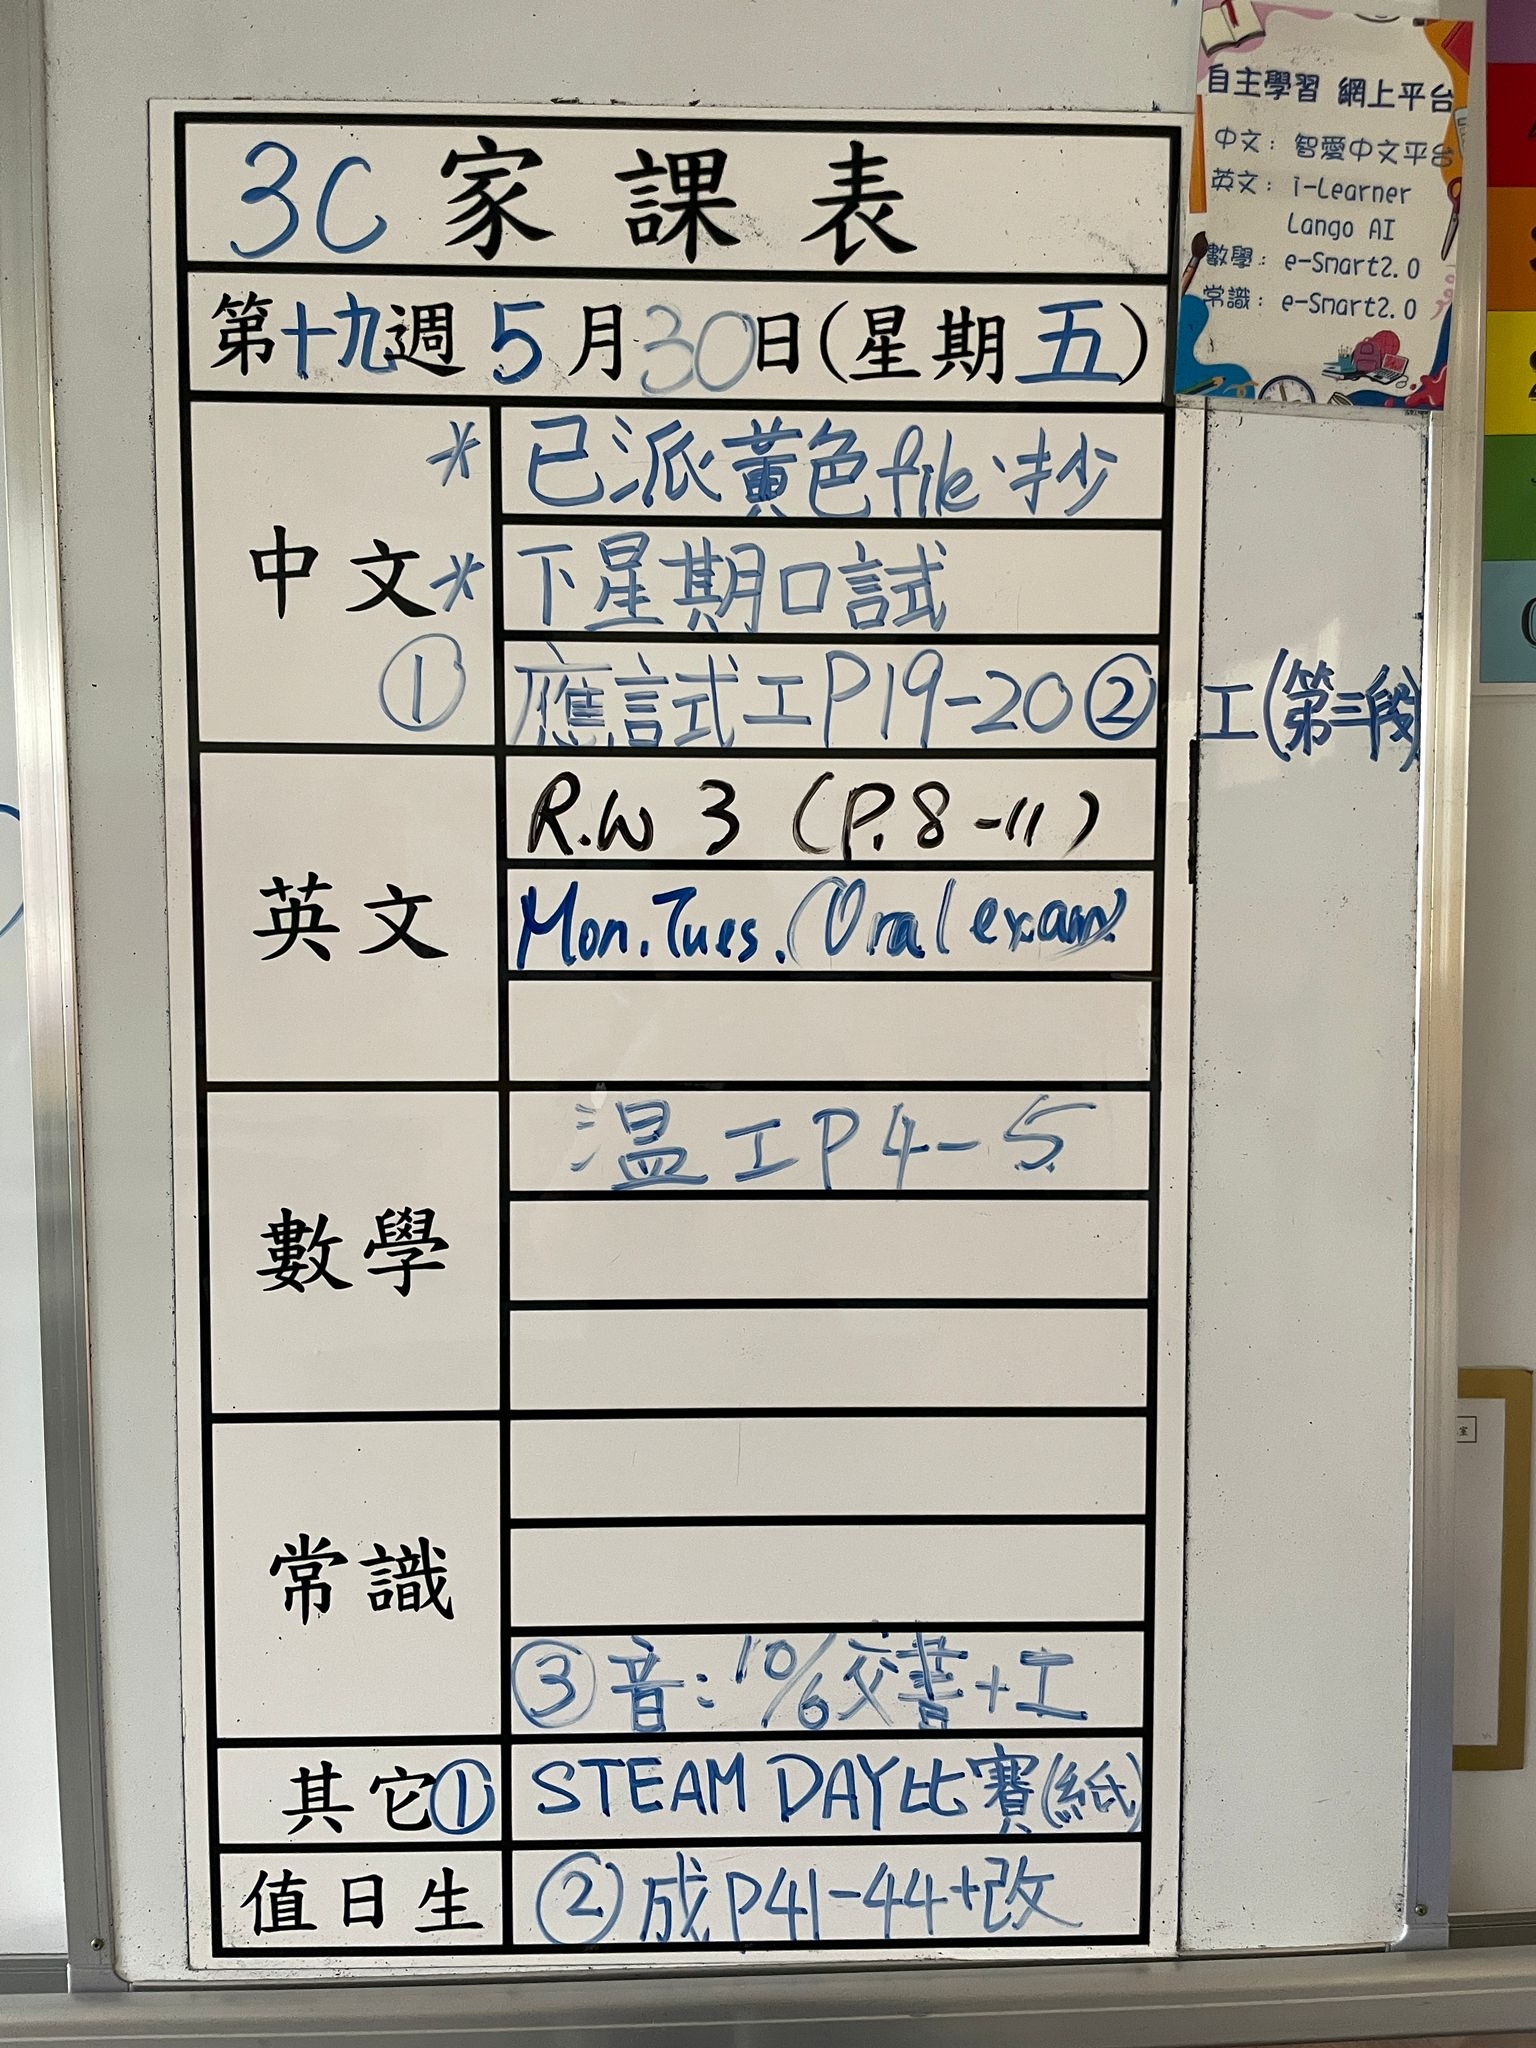 3C 家課表
第十九週 5月30日(星期五)
中文
* 已派黃色file、抄
* 下星期口試
① 應試工P19-20 ② 工(第三段)
英文
R.W 3 (P.8-11)
Mon. Tues. (Oral exam)
數學
溫工P4-5
常識
③ 音: 10/6交書+工
其它 ① STEAM DAY比賽(紙)
值日生 ② 成P41-44+改
自主學習 網上平台
中文: 智愛中文平台
英文: i-Learner
Lango AI
數學: e-Smart2.0
常識: e-Smart2.0